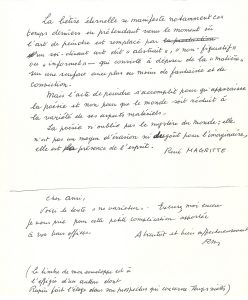 La bêtise éternelle se manifeste notamment ces
temps derniers en prétendant venu le moment où
l'art de peindre est remplacé par
un soi-disant art dit « abstrait », « non-figuratif »
ou « informel » – qui consiste à déposer de la « matière »
sur une surface avec plus ou moins de fantaisie et de
conviction.
Mais l'acte de peindre s'accomplit pour qu'apparaisse
la poésie et non pour que le monde soit réduit à
la variété de ses aspects matériels.
La poésie n'oublie pas le mystère du monde : elle
n'est pas un moyen d'évasion ni goût pour l'imaginaire,
elle est la présence de l'esprit.
René MAGRITTE
Cher ami,
Voici le texte « ne varietur ». Excusez moi encore
je vous prie pour cette petite complication apportée
à vos bons offices.
A bientôt et bien affectueusement
(Le timbre de mon enveloppe est à
l'effigie d'un auteur dont
fait l'éloge dans vos